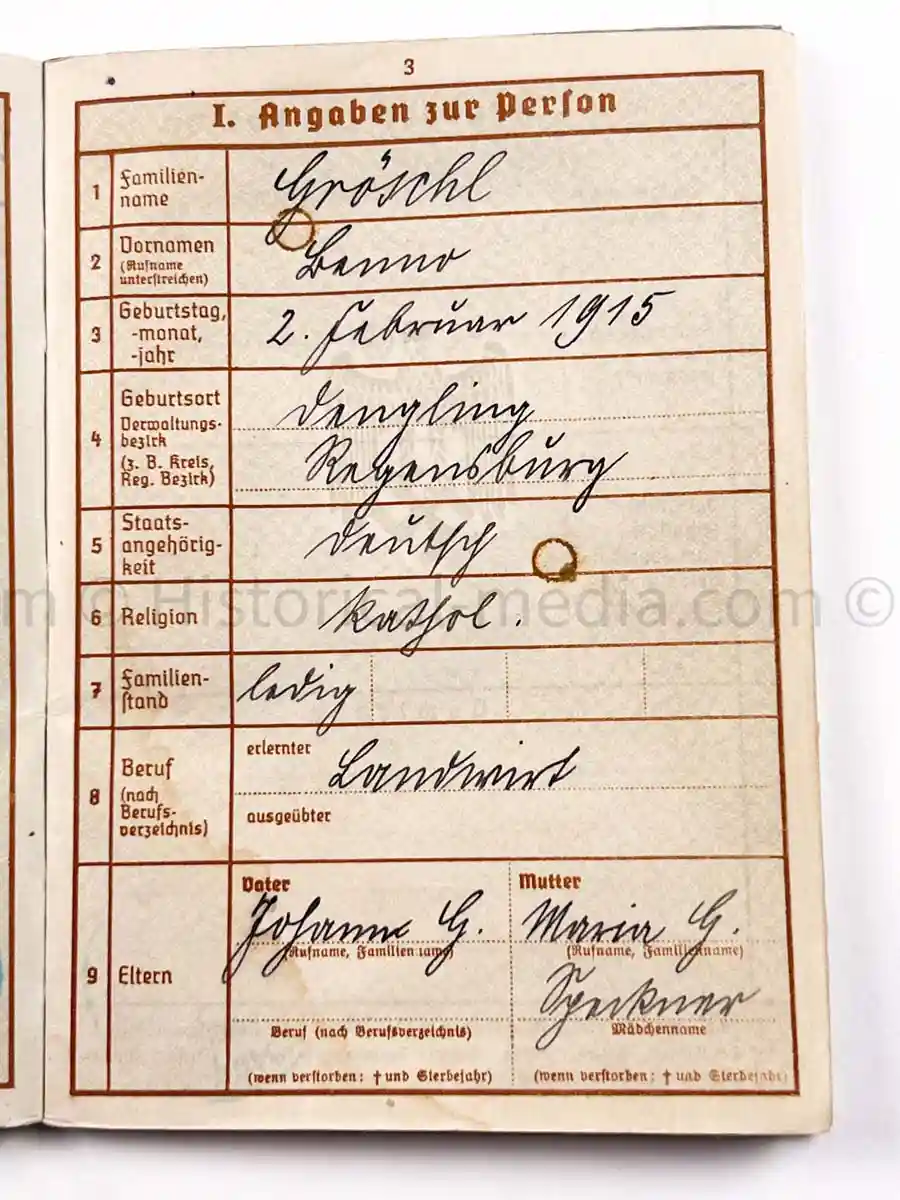 3
I. Angaben zur Person
1 Familien-
name
Gröschl
2 Vornamen
(Rufname
unterstreichen)
Benno
3 Geburtstag,
-monat,
-jahr
2. Februar 1915
4 Geburtsort
Verwaltungs-
bezirk
(z. B. Kreis,
Reg. Bezirk)
Dengling
Regensburg
5 Staats-
angehörig-
keit
deutsch
6 Religion
kathol.
7 Familien-
stand
ledig
8 Beruf
(nach
Berufs-
verzeichnis)
erlernter
Landwirt
ausgeübter
9 Eltern
Vater
Johann G.
(Rufname, Familienname)
Beruf (nach Berufsverzeichnis)
(wenn verstorben: † und Sterbejahr)
Mutter
Maria G.
(Rufname, Familienname)
Speckner
Mädchenname
(wenn verstorben: † und Sterbejahr)
m © Historical-media.com ©